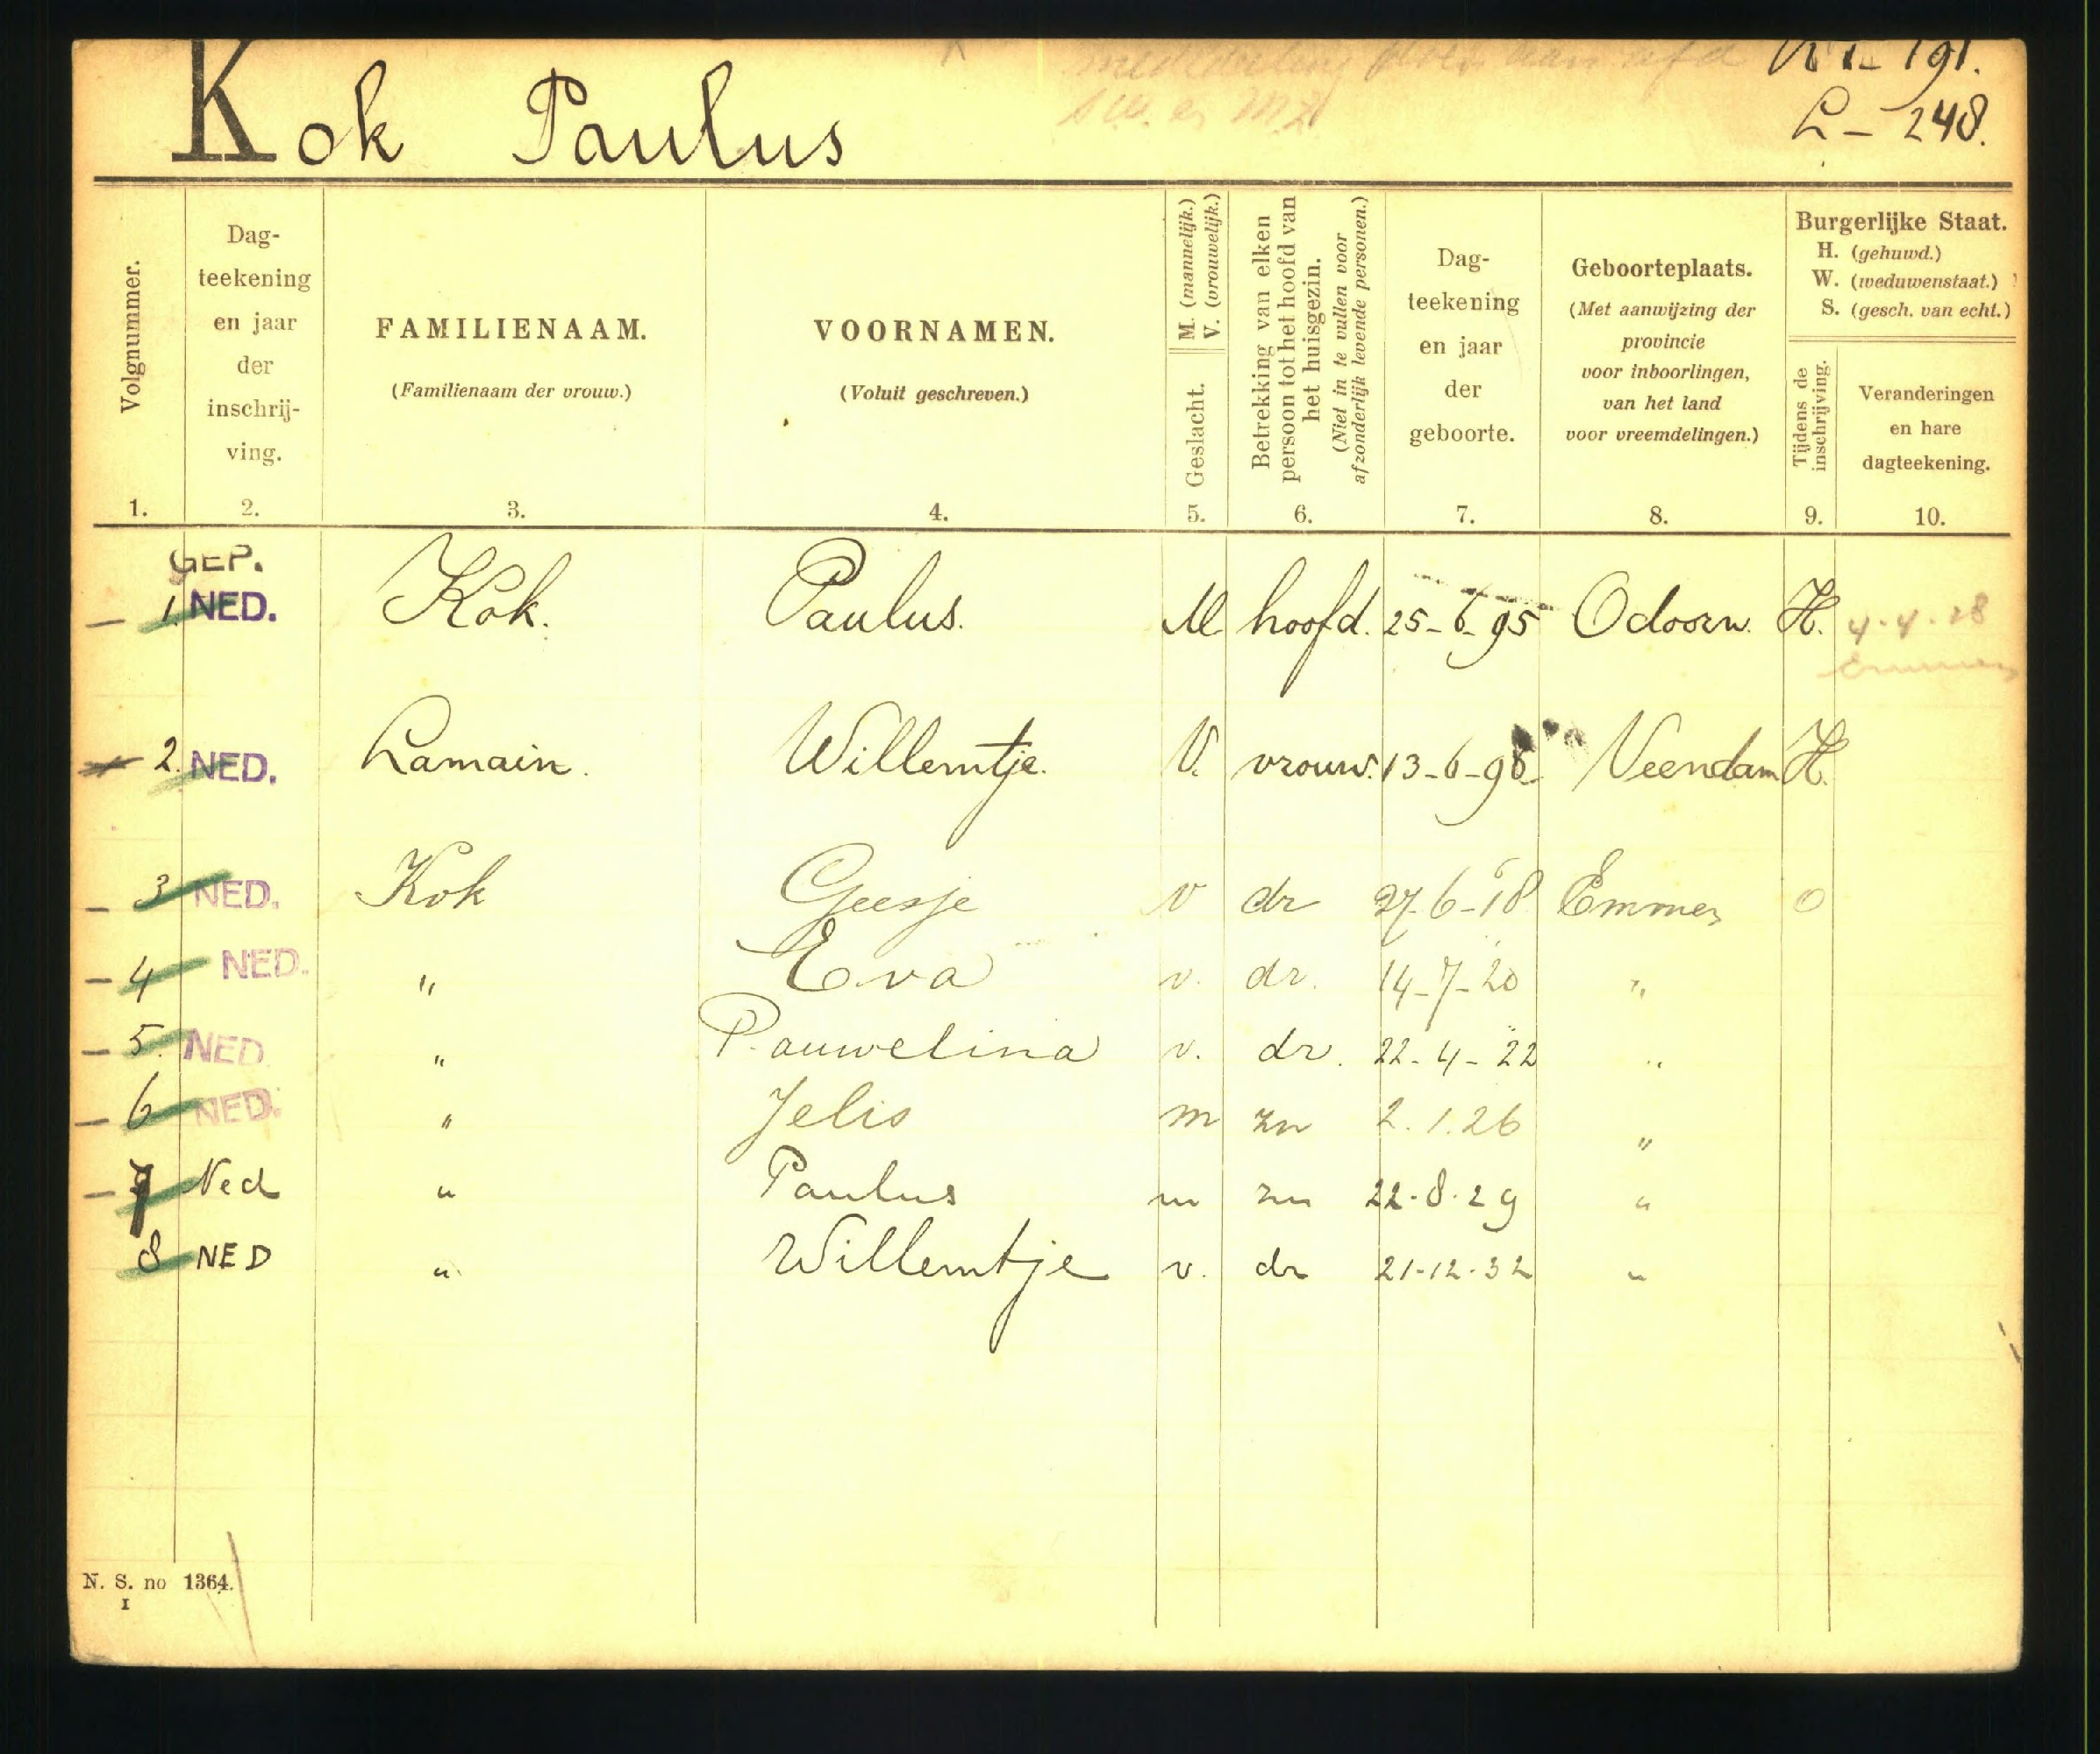 Kok Paulus
191.
L - 248.
Volgnummer.
1.
Dag-
teekening
en jaar
der
inschrij-
ving.
2.
FAMILIENAAM.
(Familienaam der vrouw.)
3.
VOORNAMEN.
(Voluit geschreven.)
4.
M. (mannelijk.)
V. (vrouwelijk.)
Geslacht.
5.
Betrekking van elken
persoon tot het hoofd van
het huisgezin.
(Niet in te vullen voor
afzonderlijk levende personen.)
6.
Dag-
teekening
en jaar
der
geboorte.
7.
Geboorteplaats.
(Met aanwijzing der
provincie
voor inboorlingen,
van het land
voor vreemdelingen.)
8.
Burgerlijke Staat.
H. (gehuwd.)
W. (weduwenstaat.)
S. (gesch. van echt.)
Tijdens de
inschrijving.
9.
Veranderingen
en hare
dagteekening.
10.
GEP.
1. NED. Kok. Paulus. M hoofd. 25-6-95 Odoorn. H. 4-4-28
Emmen
2. NED. Lamain. Willemtje. V. vrouw. 13-6-98 Veendam H.
3 NED. Kok Geesje v dr 27-6-18 Emmen O
4 NED. " Eva v. dr. 14-7-20 "
5. NED " Pauwelina v. dr. 22-4-22 "
6 NED. " Jelis m zn 2.1.26 "
7 Ned " Paulus m zn 22-8-29 "
8 NED " Willemtje v. dr 21-12-32 "
N. S. no 1364.
I